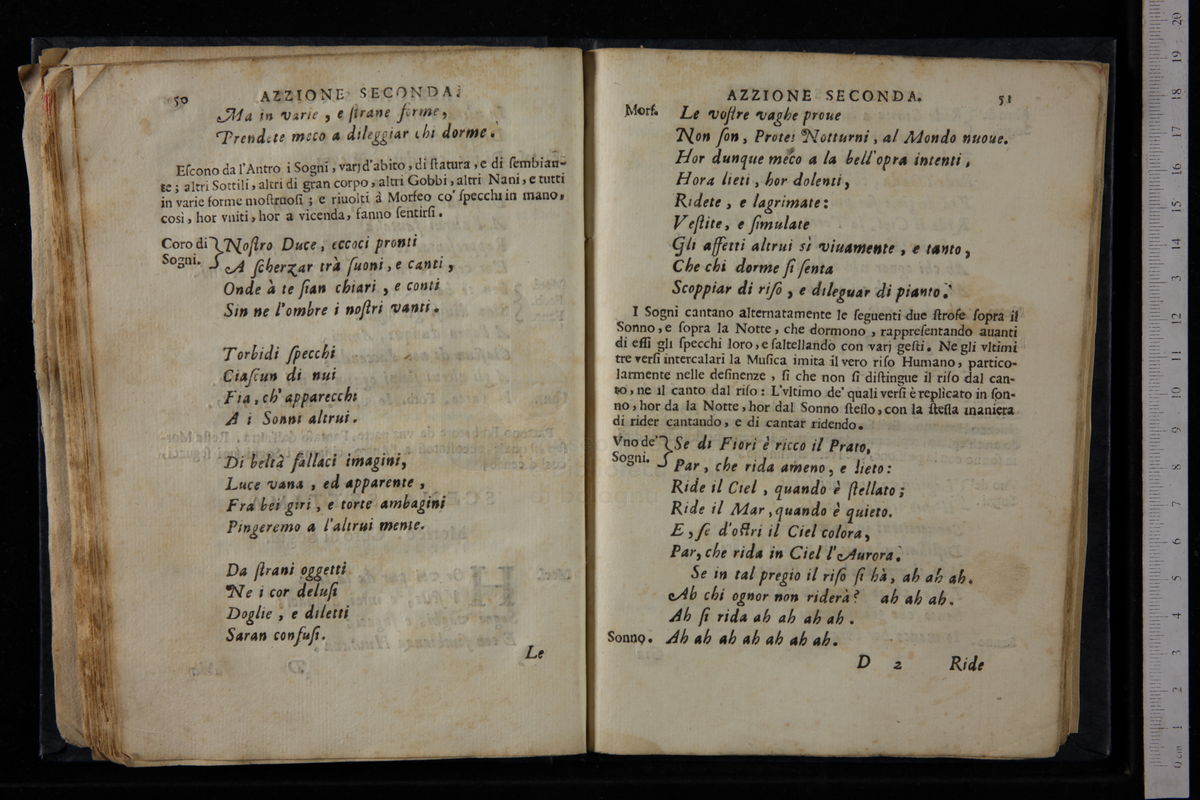 50 AZZIONE SECONDA.
Ma in varie, e ſtrane forme,
Prendete meco a dileggiar chi dorme.
Eſcono da l'Antro i Sogni, varj d'abito, di ſtatura, e di ſembian-
te; altri Sottili, altri di gran corpo, altri Gobbi, altri Nani, e tutti
in varie forme moſtruoſi; e riuolti à Morfeo co' ſpecchi in mano,
cosi, hor vniti, hor a vicenda, fanno ſentirſi.
Coro di Noſtro Duce, eccoci pronti
Sogni. A ſcherzar trà ſuoni, e canti,
Onde à te ſian chiari, e conti
Sin ne l'ombre i noſtri vanti.
Torbidi ſpecchi
Ciaſcun di nui
Fia, ch'apparecchi
A i Sonni altrui.
Di beltà fallaci imagini,
Luce vana, ed apparente,
Fra bei giri, e torte ambagini
Pingeremo a l'altrui mente.
Da ſtrani oggetti
Ne i cor deluſi
Doglie, e diletti
Saran confuſi.
Le
AZZIONE SECONDA. 51
Morf. Le voſtre vaghe proue
Non ſon, Protei Notturni, al Mondo nuoue.
Hor dunque meco a la bell'opra intenti,
Hora lieti, hor dolenti,
Ridete, e lagrimate:
Veſtite, e ſimulate
Gli affetti altrui sì viuamente, e tanto,
Che chi dorme ſi ſenta
Scoppiar di riſo, e dileguar di pianto.
I Sogni cantano alternatamente le ſeguenti due ſtrofe ſopra il
Sonno, e ſopra la Notte, che dormono, rappreſentando auanti
di eſſi gli ſpecchi loro, e ſaltellando con varj geſti. Ne gli vltimi
tre verſi intercalari la Muſica imita il vero riſo Humano, partico-
larmente nelle deſinenze, ſi che non ſi diſtingue il riſo dal can-
to, ne il canto dal riſo: L'vltimo de' quali verſi è replicato in ſon-
no, hor da la Notte, hor dal Sonno ſteſſo, con la ſteſſa maniera
di rider cantando, e di cantar ridendo.
Vno de' Se di Fiori è ricco il Prato,
Sogni. Par, che rida ameno, e lieto:
Ride il Ciel, quando è ſtellato;
Ride il Mar, quando è quieto.
E, ſe d'oſtri il Ciel colora,
Par, che rida in Ciel l'Aurora.
Se in tal pregio il riſo ſi hà, ah ah ah.
Ah chi ognor non riderà? ah ah ah.
Ah ſi rida ah ah ah ah.
Sonno. Ah ah ah ah ah ah ah.
D 2 Ride